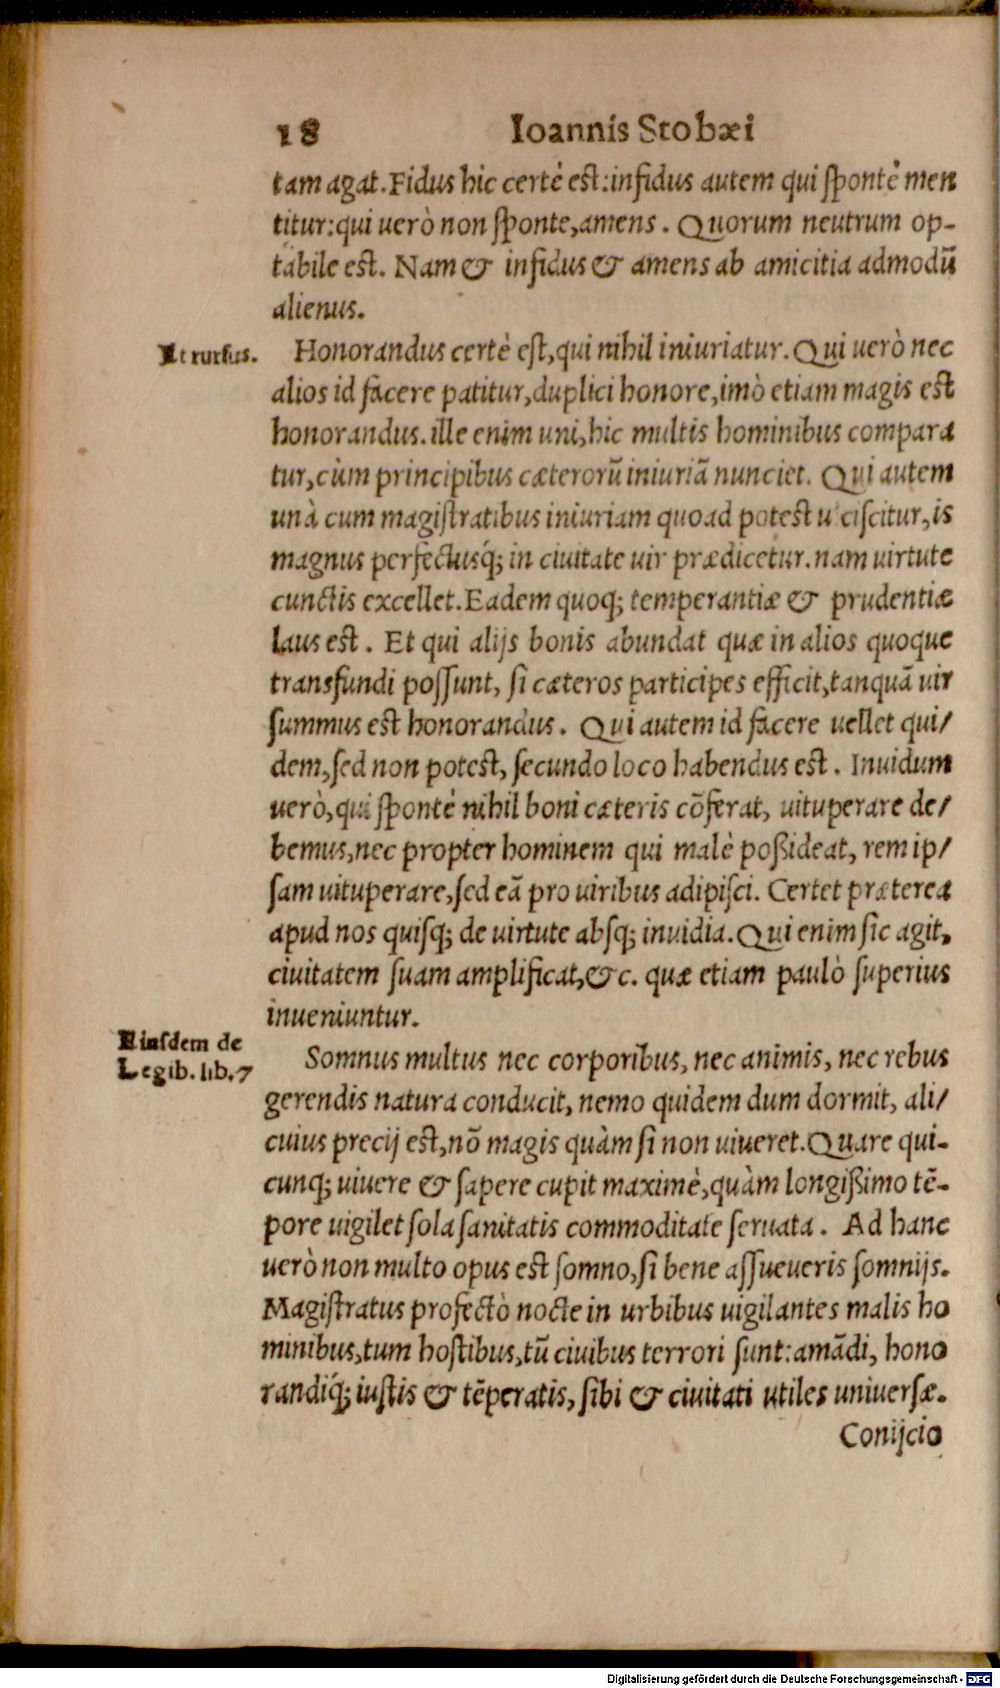 18 Ioannis Stobæi
tam agat. Fidus hic certè est: infidus autem qui spontè men
titur: qui uerò non sponte, amens. Quorum neutrum op-
tabile est. Nam & infidus & amens ab amicitia admodũ
alienus.
Et rursus.
Honorandus certè est, qui nihil iniuriatur. Qui uerò nec
alios id facere patitur, duplici honore, imò etiam magis est
honorandus. ille enim uni, hic multis hominibus compara
tur, cùm principibus cæterorũ iniuriã nunciet. Qui autem
unà cum magistratibus iniuriam quoad potest u ciscitur, is
magnus perfectusq́; in ciuitate uir prædicetur. nam uirtute
cunctis excellet. Eadem quoq; temperantiæ & prudentiæ
laus est. Et qui alijs bonis abundat quæ in alios quoque
transfundi possunt, si cæteros participes efficit, tanquã uir
summus est honorandus. Qui autem id facere uellet qui/
dem, sed non potest, secundo loco habendus est. Inuidum
uerò, qui spontè nihil boni cæteris cõferat, uituperare de/
bemus, nec propter hominem qui malè poßideat, rem ip/
sam uituperare, sed eã pro uiribus adipisci. Certet præterea
apud nos quisq; de uirtute absq; inuidia. Qui enim sic agit,
ciuitatem suam amplificat, &c. quæ etiam paulò superius
inueniuntur.
Eiusdem de
Legib. lib. 7
Somnus multus nec corporibus, nec animis, nec rebus
gerendis natura conducit, nemo quidem dum dormit, ali/
cuius precij est, nõ magis quàm si non uiueret. Quare qui-
cunq; uiuere & sapere cupit maximè, quàm longißimo tẽ-
pore uigilet sola sanitatis commoditate seruata. Ad hanc
uerò non multo opus est somno, si bene assueueris somnijs.
Magistratus profectò nocte in urbibus uigilantes malis ho
minibus, tum hostibus, tũ ciuibus terrori sunt: amãdi, hono
randiq́; iustis & tẽperatis, sibi & ciuitati utiles uniuersæ.
Conijcio
Digitalisierung gefördert durch die Deutsche Forschungsgemeinschaft - DFG